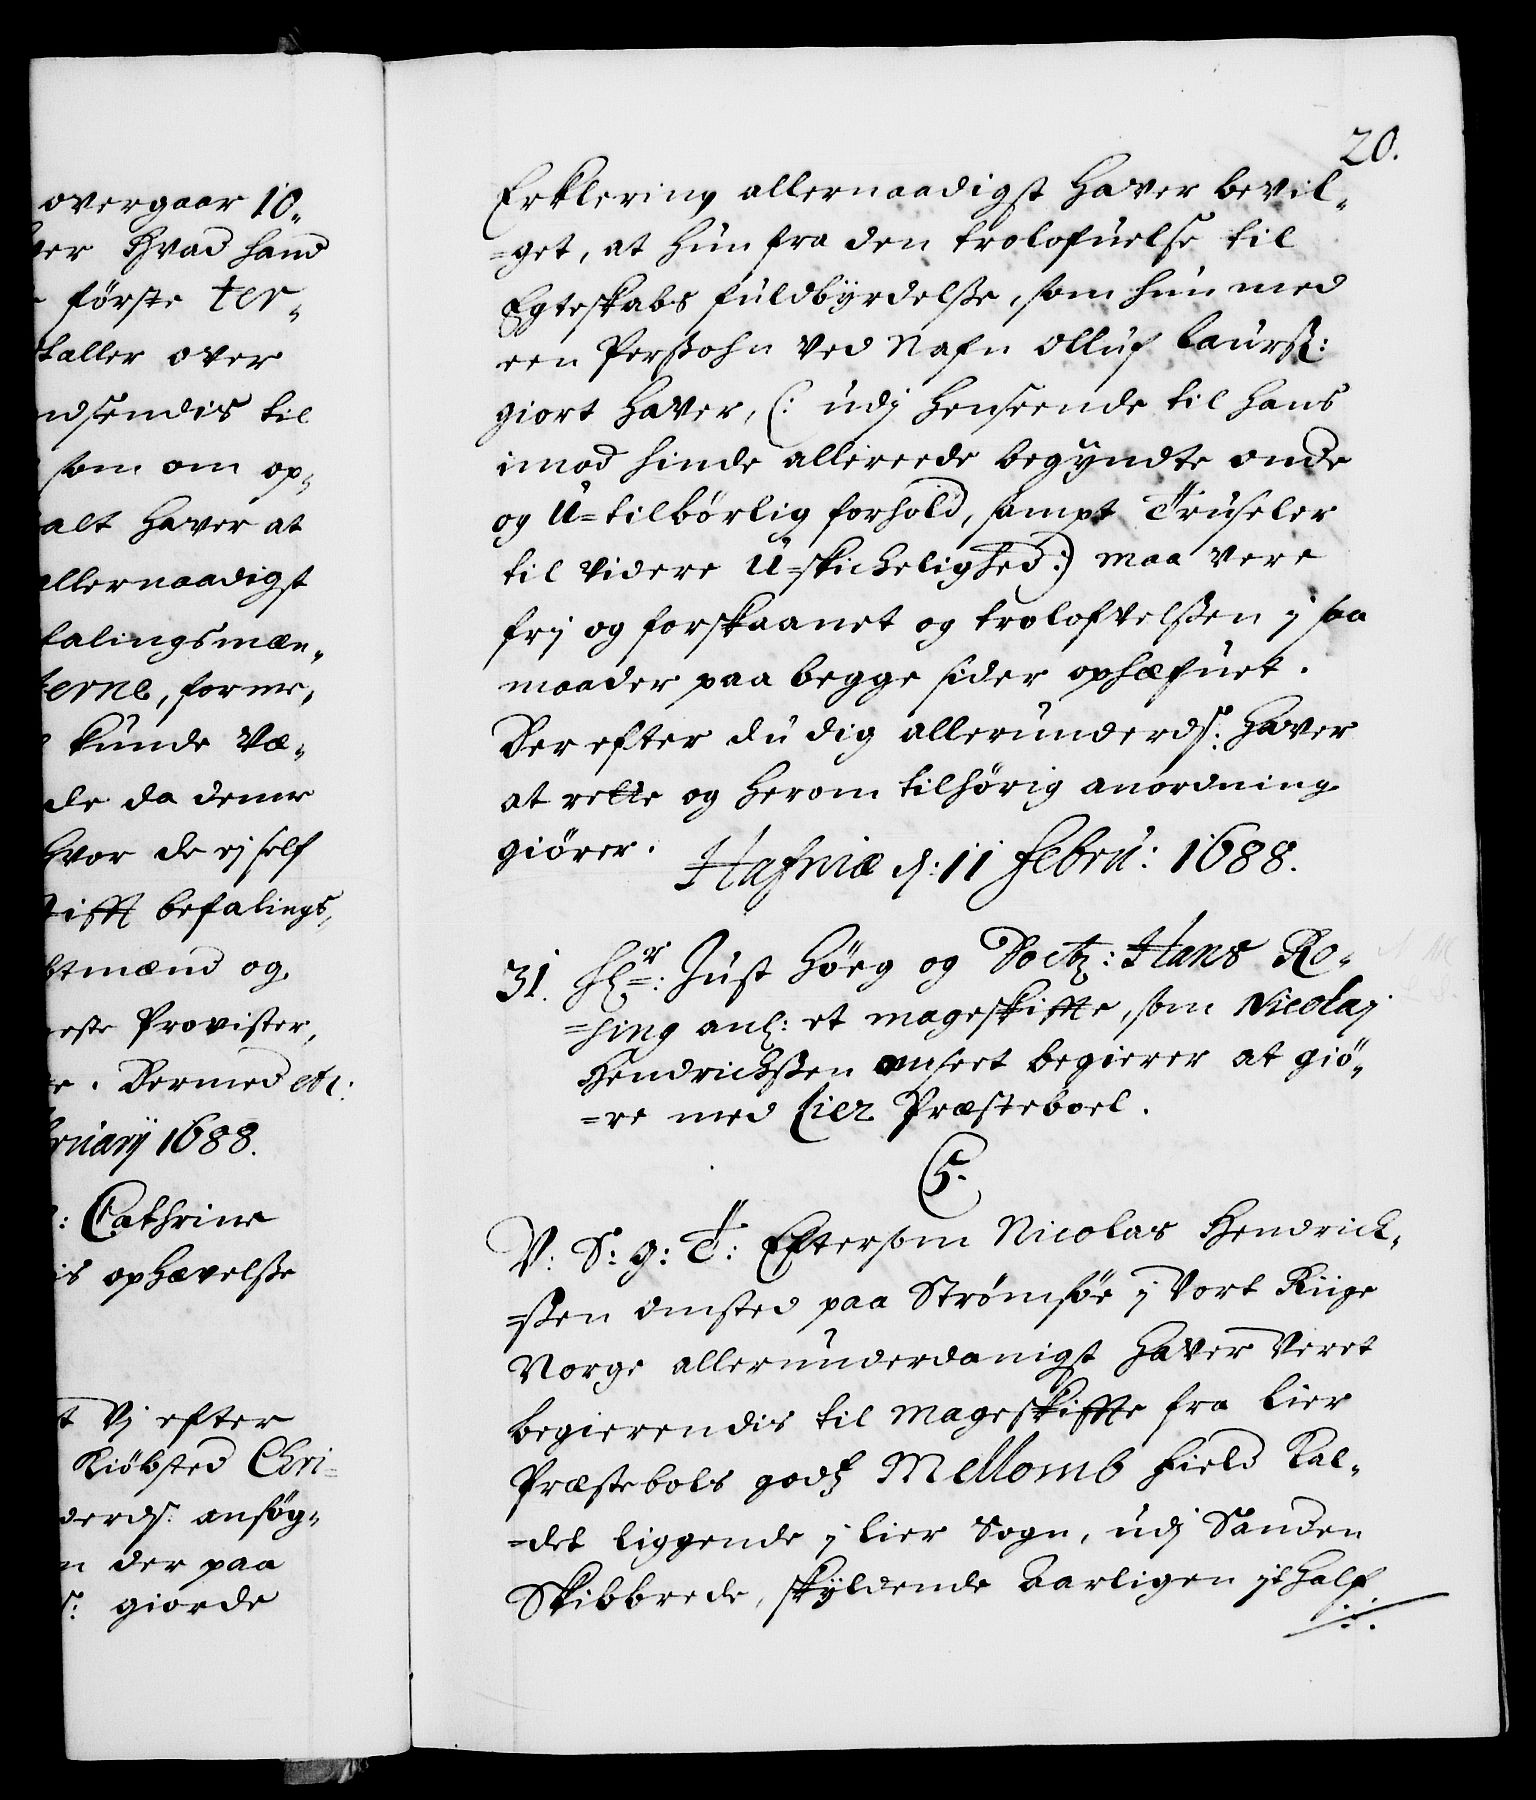 overgaar 10„
hvad hand
förste ter„
kaller over
ndsendis til
som om op„
alt haver at
allernaadigst
talingsmæn„
terne, forme„
kunde væ„
de da denne
hvor de ej self
tifft befalings„
btmænd og
este Provister,
e. Dermed etc:
bruarij 1688.
: Cathrine
is ophævelsse
t vj efter
Kiöbsted Chri=
derds: ansøg„
n der paa
s: giorde
20.
Erklering allernaadigst haver bevil„
=get, at hun fra den trolofuelse til
Egteskabs fuldbyrdelsse, som hun med
een Perssohn ved Nafn Olluf Laurss:
giort haver, (: udj henseende til hans
imod hinde allereede begyndte onde
og U=tilbörlig forhold, sampt Truseler
til videre U=skichelighed:) maa vere
frj og forskaanet og trolofvelssen j saa
maader paa begge sider ophæfuet.
Derefter du dig allerunderds: haver
at rette og herom tilhörig anordning
giörer.
Hafniæ d: 11 Febru: 1688.
31. Hr: Just Höeg og Doct: Hans Ro„
=sing anl: et mageskiffte, som Nicolaj
Hendrichssen ansert begierer at giö„
=re med Lier Præsteboel.
C5.
V: S: g: T: Eftersom Nicolas Hendrich„
=ssen onsted paa Strömsöe j Vort Riige
Norge allerunderdanigst haver veret
begierendis til mageskiffte fra Lier
Præstebols gods Mellomb field kal„
=det liggende j Lier Sogn, udj Sanden
Skibbrede, skyldende Aarligen jt half